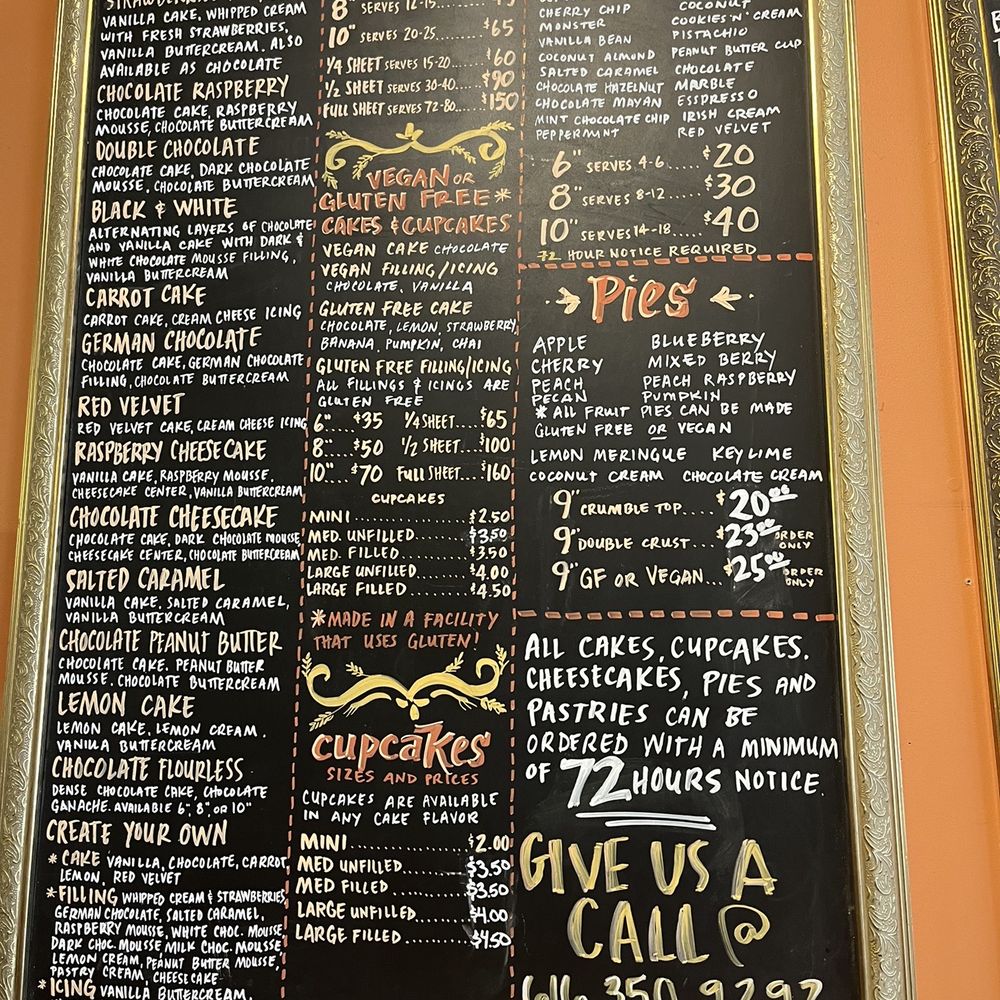 VANILLA CAKE, WHIPPED CREAM
WITH FRESH STRAWBERRIES,
VANILLA BUTTERCREAM. ALSO
AVAILABLE AS CHOCOLATE
CHOCOLATE RASPBERRY
CHOCOLATE CAKE, RASPBERRY
MOUSSE, CHOCOLATE BUTTERCREAM
DOUBLE CHOCOLATE
CHOCOLATE CAKE, DARK CHOCOLATE
MOUSSE, CHOCOLATE BUTTERCREAM
BLACK & WHITE
ALTERNATING LAYERS OF CHOCOLATE
AND VANILLA CAKE WITH DARK &
WHITE CHOCOLATE MOUSSE FILLING,
VANILLA BUTTERCREAM
CARROT CAKE
CARROT CAKE, CREAM CHEESE ICING
GERMAN CHOCOLATE
CHOCOLATE CAKE, GERMAN CHOCOLATE
FILLING, CHOCOLATE BUTTERCREAM
RED VELVET
RED VELVET CAKE, CREAM CHEESE ICING
RASPBERRY CHEESECAKE
VANILLA CAKE, RASPBERRY MOUSSE,
CHEESECAKE CENTER, VANILLA BUTTERCREAM
CHOCOLATE CHEESECAKE
CHOCOLATE CAKE, DARK CHOCOLATE MOUSSE
CHEESECAKE CENTER, CHOCOLATE BUTTERCREAM
SALTED CARAMEL
VANILLA CAKE, SALTED CARAMEL,
VANILLA BUTTERCREAM
CHOCOLATE PEANUT BUTTER
CHOCOLATE CAKE. PEANUT BUTTER
MOUSSE. CHOCOLATE BUTTERCREAM
LEMON CAKE
LEMON CAKE, LEMON CREAM,
VANILLA BUTTERCREAM
CHOCOLATE FLOURLESS
DENSE CHOCOLATE CAKE, CHOCOLATE
GANACHE. AVAILABLE 6", 8", OR 10"
CREATE YOUR OWN
*CAKE VANILLA, CHOCOLATE, CARROT,
LEMON, RED VELVET
*FILLING WHIPPED CREAM & STRAWBERRIES,
GERMAN CHOCOLATE, SALTED CARAMEL,
RASPBERRY MOUSSE, WHITE CHOC. MOUSSE,
DARK CHOC. MOUSSE MILK CHOC. MOUSSE
LEMON CREAM, PEANUT BUTTER MOUSSE,
PASTRY CREAM, CHEESECAKE
*ICING VANILLA BUTTERCREAM,
8" SERVES 12-15
10" SERVES 20-25...... $65
1/4 SHEET SERVES 15-20...... $60
1/2 SHEET SERVES 30-40..... $90
FULL SHEET SERVES 72-80..... $150
VEGAN OR
GLUTEN FREE*
CAKES & CUPCAKES
VEGAN CAKE CHOCOLATE
VEGAN FILLING/ICING
CHOCOLATE, VANILLA
GLUTEN FREE CAKE
CHOCOLATE, LEMON, STRAWBERRY,
BANANA, PUMPKIN, CHAI
GLUTEN FREE FILLING/ICING
ALL FILLINGS & ICINGS ARE
GLUTEN FREE
6".... $35 1/4 SHEET... $65
8".... $50 1/2 SHEET... $100
10"... $70 FULL SHEET... $160
CUPCAKES
MINI.................. $2.50
MED UNFILLED....... $3.50
MED. FILLED.......... $3.50
LARGE UNFILLED..... $4.00
LARGE FILLED........ $4.50
*MADE IN A FACILITY
THAT USES GLUTEN!
cupcakes
SIZES AND PRICES
CUPCAKES ARE AVAILABLE
IN ANY CAKE FLAVOR
MINI................ $2.00
MED UNFILLED........ $3.50
MED FILLED.......... $3.50
LARGE UNFILLED...... $4.00
LARGE FILLED........ $4.50
CHERRY CHIP
MONSTER
VANILLA BEAN
COCONUT ALMOND
SALTED CARAMEL
CHOCOLATE HAZELNUT
CHOCOLATE MAYAN
MINT CHOCOLATE CHIP
PEPPERMINT
COCONUT
COOKIES 'N' CREAM
PISTACHIO
PEANUT BUTTER CUP
CHOCOLATE
MARBLE
ESSPRESSO
IRISH CREAM
RED VELVET
6" SERVES 4-6..... $20
8" SERVES 8-12..... $30
10" SERVES 14-18..... $40
72 HOUR NOTICE REQUIRED
Pies
APPLE BLUEBERRY
CHERRY MIXED BERRY
PEACH PEACH RASPBERRY
PECAN PUMPKIN
*ALL FRUIT PIES CAN BE MADE
GLUTEN FREE OR VEGAN
LEMON MERINGUE KEY LIME
COCONUT CREAM CHOCOLATE CREAM
9" CRUMBLE TOP.... $20.00
9" DOUBLE CRUST... $23.00 ORDER ONLY
9" GF OR VEGAN... $25.00 ORDER ONLY
ALL CAKES, CUPCAKES.
CHEESECAKES, PIES AND
PASTRIES CAN BE
ORDERED WITH A MINIMUM
OF 72 HOURS NOTICE.
GIVE US A
CALL @